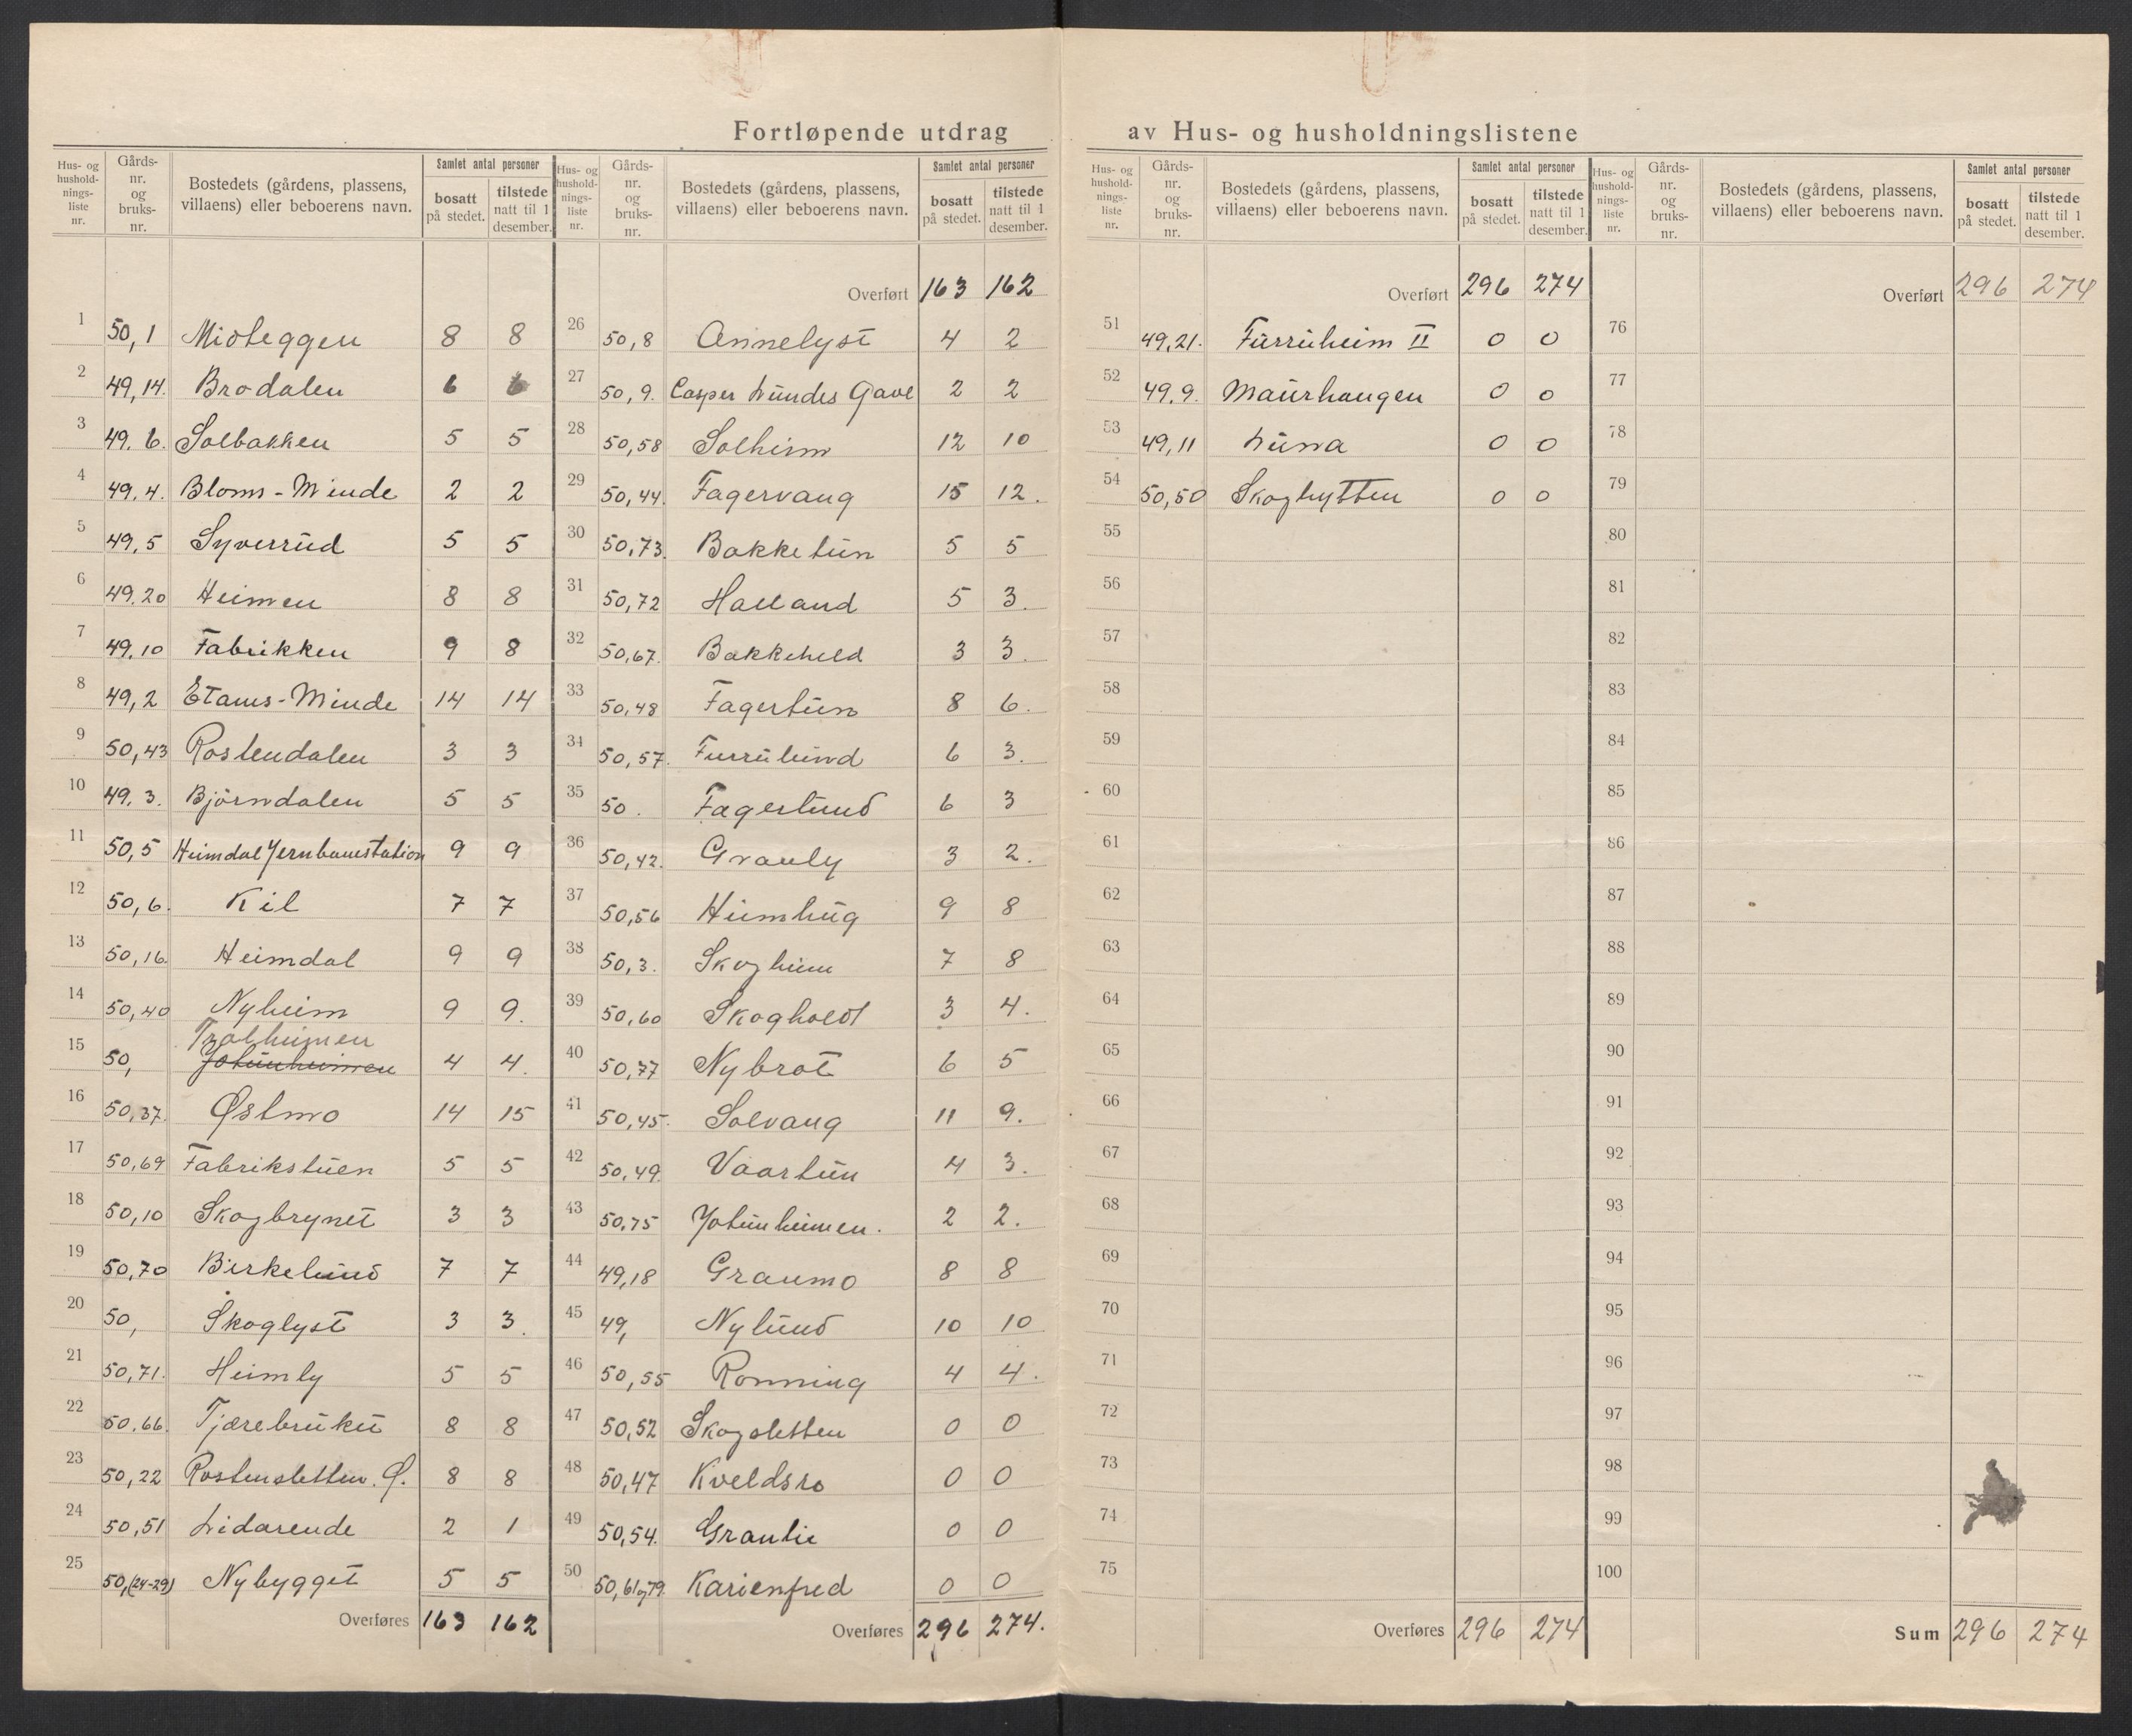 Fortløpende utdrag av Hus- og husholdningslistene
Hus- og husholdnings-liste nr. Gårds-nr. og bruks-nr. Bostedets (gårdens, plassens, villaens) eller beboerens navn. Samlet antal personer bosatt på stedet. tilstede natt til 1 desember.
1 50,1 Midteggen 8 8
2 49,14. Brodalen 6 6
3 49.6. Solbakken 5 5
4 49.4. Bloms-Minde 2 2
5 49,5 Syverrud 5 5
6 49.20 Heimen 8 8
7 49.10 Fabrikken 9 8
8 49,2 Etams-Minde 14 14
9 50,43 Rostendalen 3 3
10 49.3. Bjørndalen 5 5
11 50,5 Heimdal Jernbanestation 9 9
12 50,6. Kil 7 7
13 50,16. Heimdal 9 9
14 50,40 Nyheim 9 9.
15 50, Trolheimen Jotunheimen 4 4.
16 50,37. Østmo 14 15
17 50,69 Fabrikstuen 5 5
18 50,10 Skogbrynet 3 3
19 50,70 Birkelund 7 7
20 50, Skoglyst 3 3.
21 50,71. Heimly 5 5
22 50.66. Tjærebruket 8 8
23 50,22 Rostensletten. Ø. 8 8
24 50,51 Lidarende 2 1
25 50,(24-29) Nybygget 5 5
Overføres 163 162
Hus- og husholdnings-liste nr. Gårds-nr. og bruks-nr. Bostedets (gårdens, plassens, villaens) eller beboerens navn. Samlet antal personer bosatt på stedet. tilstede natt til 1 desember.
Overført 163 162
26 50,8 Annelyst 4 2
27 50,9. Casper Lundes Gave 2 2
28 50,58 Solheim 12 10
29 50,44. Fagervang 15 12.
30 50,73. Bakketun 5 5
31 50,72 Halland 5 3.
32 50,67. Bakkeheld 3 3.
33 50,48 Fagertun 8 6.
34 50,57. Furrulund 6 3.
35 50. Fagerlund 6 3
36 50,42. Granly 3 2.
37 50,56 Heimhug 9 8
38 50,3. Skogheim 7 8
39 50,60 Skogholdt 3 4.
40 50,77 Nybrot 6 5
41 50,45. Solvang 11 9.
42 50,49. Vaartun 4 3.
43 50,75 Jotunheimen. 2 2.
44 49,18 Granmo 8 8
45 49, Nylund 10 10
46 50,55 Rønning 4 4.
47 50,52 Skogsletten 0 0
48 50,47 Kveldsro 0 0
49 50,54. Granlie 0 0
50 50,61og79. Karienfred 0 0
Overføres 296 274.
Hus- og husholdnings-liste nr. Gårds-nr. og bruks-nr. Bostedets (gårdens, plassens, villaens) eller beboerens navn. Samlet antal personer bosatt på stedet. tilstede natt til 1 desember.
Overført 296 274
51 49,21. Furruheim II 0 0
52 49.9. Maurhaugen 0 0
53 49,11 Luna 0 0
54 50,50 Skoghytten 0 0
55
56
57
58
59
60
61
62
63
64
65
66
67
68
69
70
71
72
73
74
75
Overføres 296 274
Hus- og husholdnings-liste nr. Gårds-nr. og bruks-nr. Bostedets (gårdens, plassens, villaens) eller beboerens navn. Samlet antal personer bosatt på stedet. tilstede natt til 1 desember.
Overført 296 274
76
77
78
79
80
81
82
83
84
85
86
87
88
89
90
91
92
93
94
95
96
97
98
99
100
Sum 296 274